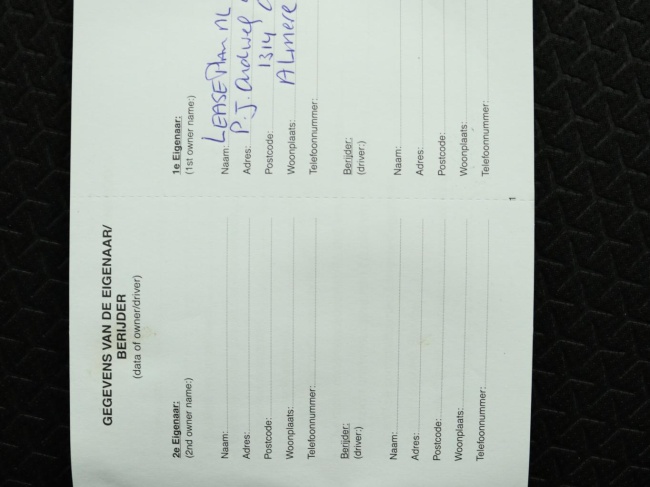 GEGEVENS VAN DE EIGENAAR/
BERIJDER
(data of owner/driver)
2e Eigenaar:
(2nd owner name:)
Naam:
Adres:
Postcode:
Woonplaats:
Telefoonnummer:
Berijder:
(driver:)
Naam:
Adres:
Postcode:
Woonplaats:
Telefoonnummer:
1e Eigenaar:
(1st owner name:)
Naam: LEASE Plan NL
Adres: P.J.
Postcode: 1314
Woonplaats: ALmere
Telefoonnummer:
Berijder:
(driver:)
Naam:
Adres:
Postcode:
Woonplaats:
Telefoonnummer:
1